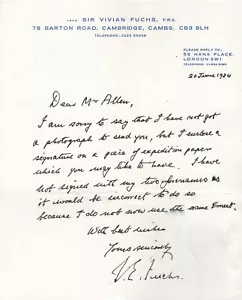 FROM SIR VIVIAN FUCHS, FRS
78 BARTON ROAD, CAMBRIDGE, CAMBS, CB3 9LH
TELEPHONE:
PLEASE REPLY TO:
55 HANS PLACE,
LONDON SW1
TELEPHONE:
20 June 1984
Dear Mr Allen,
I am sorry to say that I have not got
a photograph to send you, but I enclose a
signature on a piece of expedition paper
which you may like to have. I have
not signed with my two forenames as
it would be incorrect to do so
because I do not now use the name Ernest.
With best wishes
Yours sincerely
V.E. Fuchs.